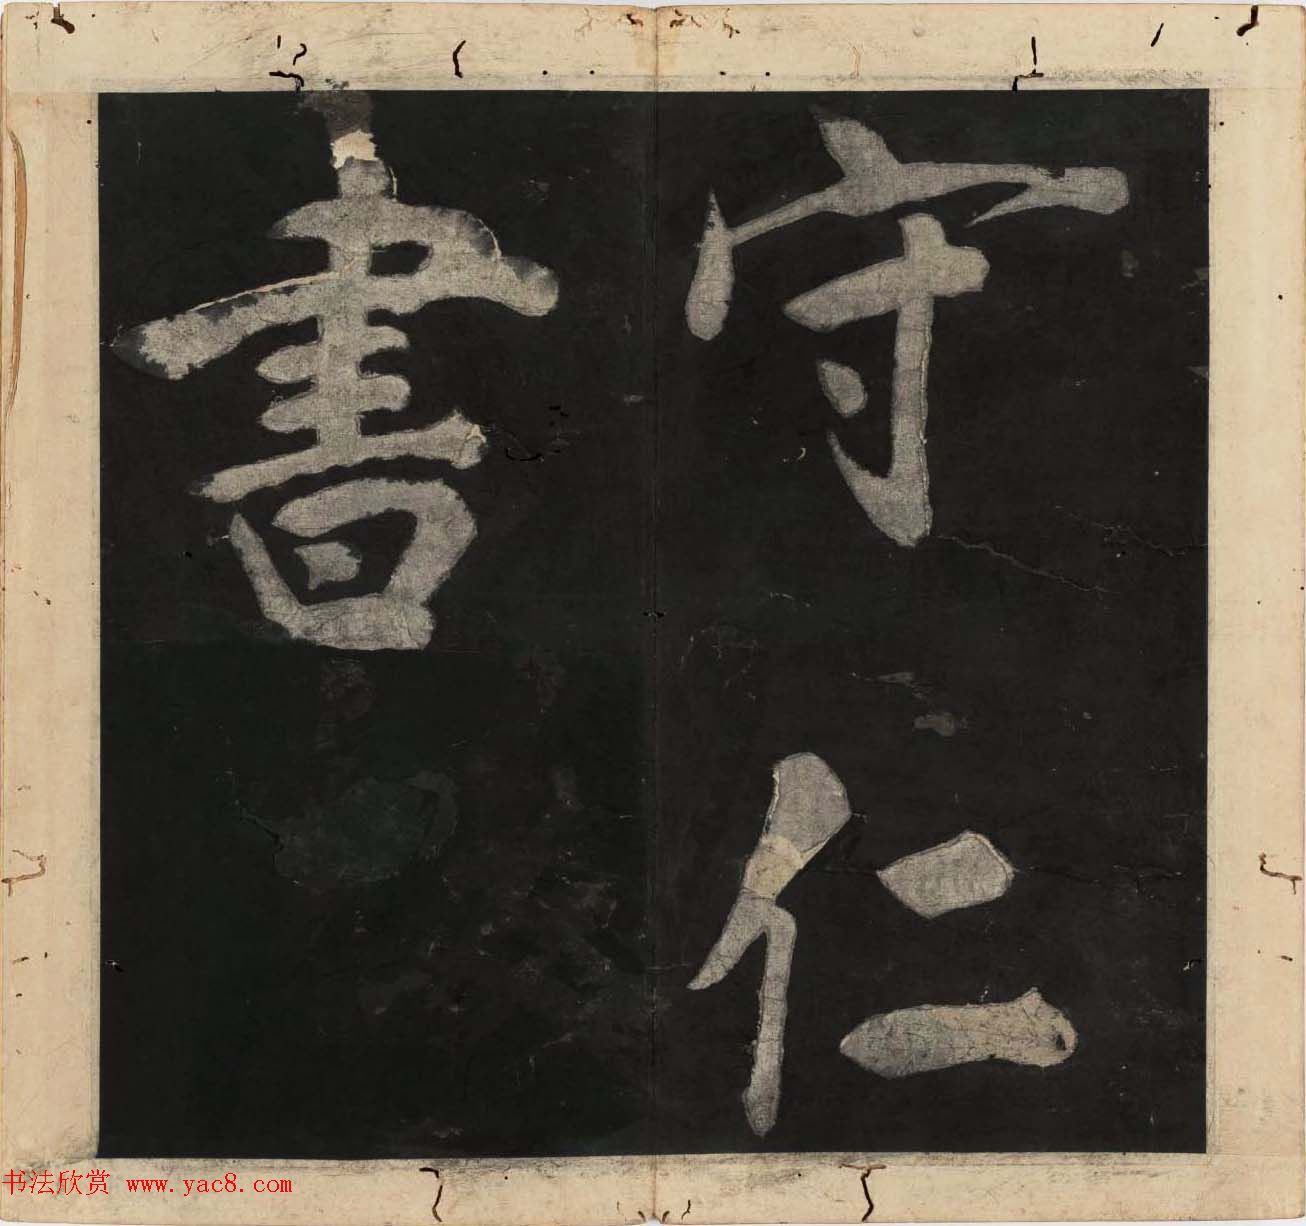 守仁
書
书法欣赏 www.yac8.com